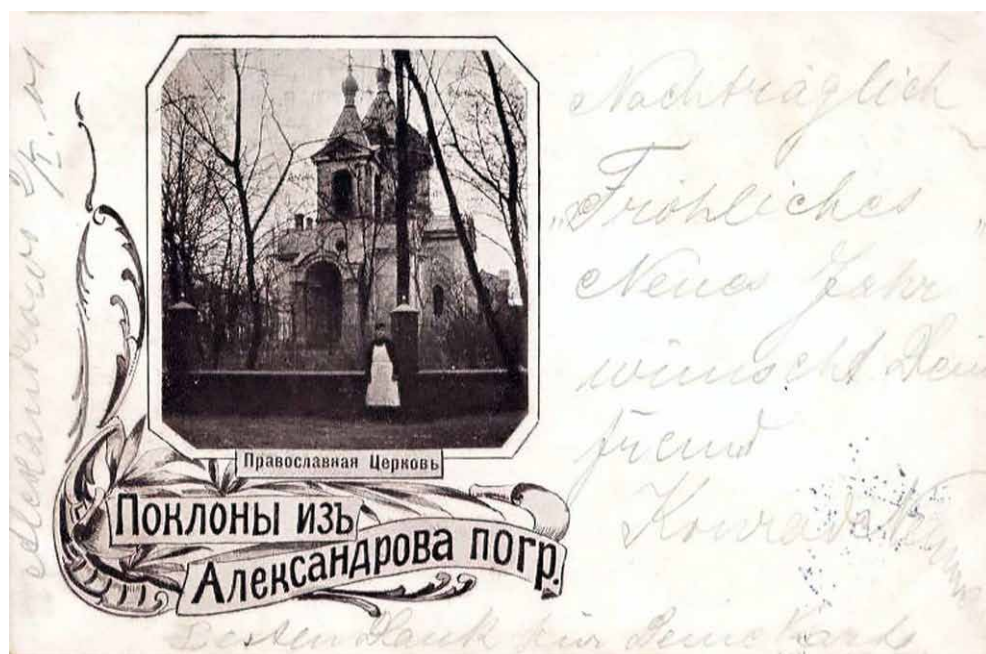 Православная Церковь
Поклоны изъ
Александрова погр.
Nachträglich
"Fröhliches
Neues Jahr"
wünscht Dein
freund
Konrad
Besten Dank für Deine Karte